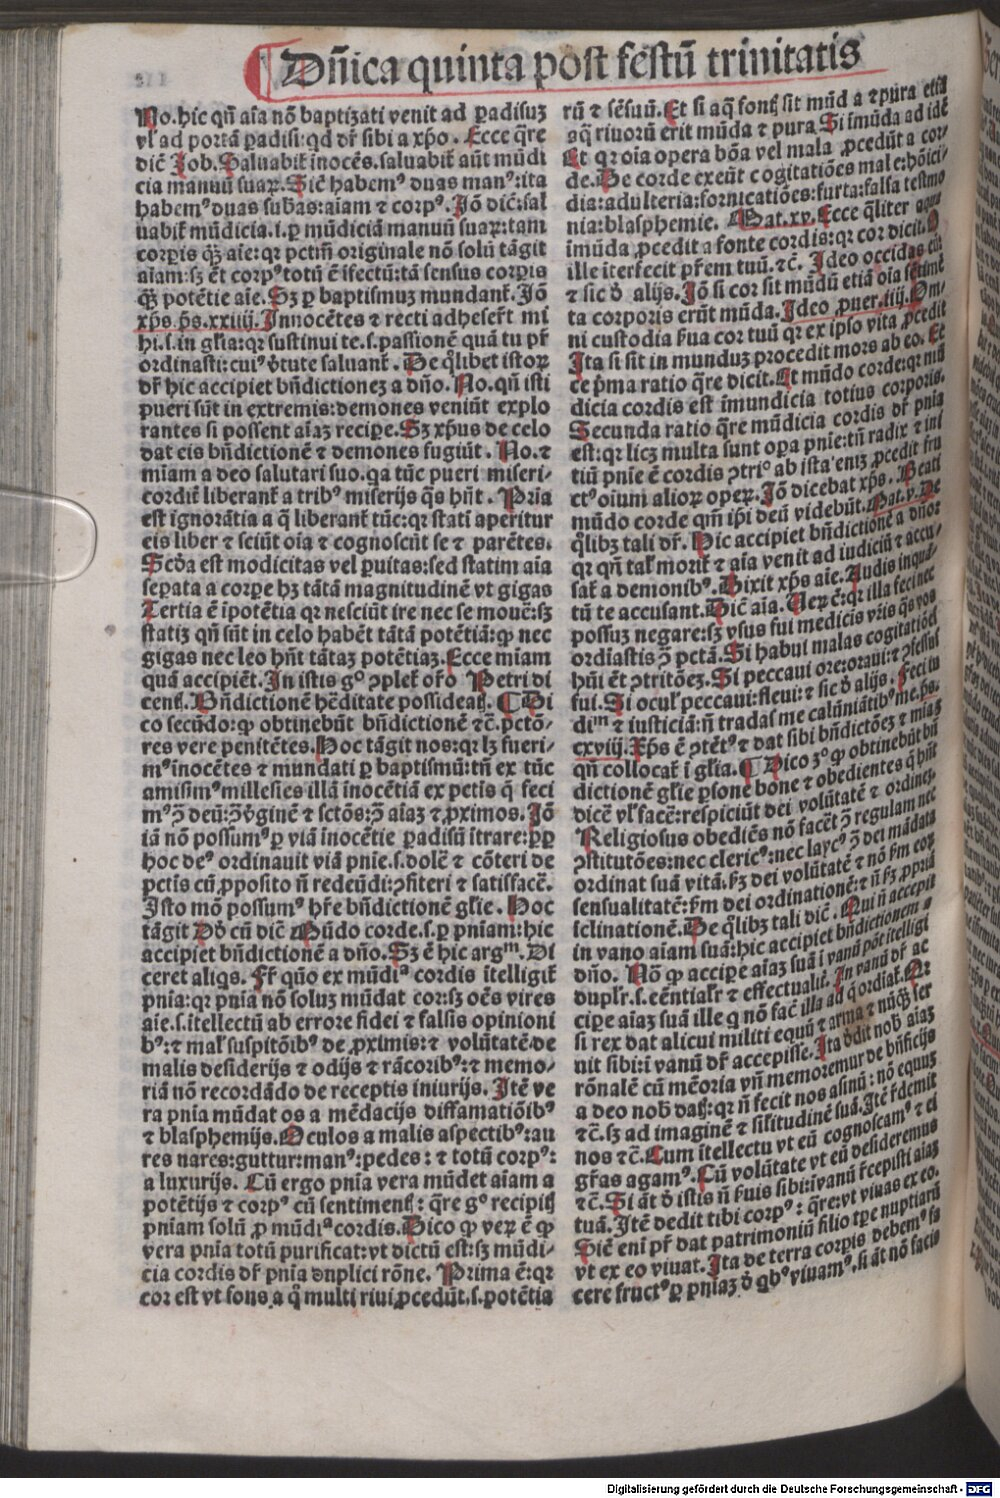 Dñica quinta post festū trinitatis
No. hic qñ aīa nō baptizati venit ad ꝑadisuꝫ
vl' ad portā ꝑadisi: qd dr̄ sibi a xp̄o. Ecce q̄re
dic̄ Job. Saluabiť inocēs. saluabiť aūt mūdi
cia manuū suaꝝ. Sic̄ habemꝰ duas manꝰ: ita
habemꝰ duas subās: aīam ⁊ corpꝰ. Jō dic̄: sal
uabiť mūdicia. i. ꝑ mūdiciā manuū suaꝝ: tam
corꝑis qꝫ̄ aīe: qꝛ pctm̄ originale nō solū tāgit
aīam: sꝫ ēt corpꝰ totū ē īfectū: tā sensus corꝑis
qꝫ̄ potētie aīe. Sꝫ ꝑ baptismuꝫ mundanť. Jō
xp̄s. ps̄. xxiiij. Innocētes ⁊ recti adheser̄t mi
hi. s. in gl'ia: qꝛ sustinui te. s. passionē quā tu pr̄
ordinasti: cuiꝰ v̓tute saluanť. De q̄libet istoꝝ
dr̄ hic accipiet bn̄dictioneꝫ a dn̄o. No. qn̄ isti
pueri sūt in extremis: demones veniūt explo
rantes si possent aīaꝫ reciꝑe. Sꝫ xp̄us de celo
dat eis bn̄dictionē ⁊ demones fugiūt. No. ⁊
mīam a deo salutari suo. qa tūc pueri miseri-
cordit̄ liberanť a tribꝰ miserijs q̄s hn̄t. Pria
est ignorātia a q̄ liberanť tūc: qꝛ stati aperitur
eis liber ⁊ sciūt oīa ⁊ cognoscūt se ⁊ parētes.
Scd̓a est modicitas vel ꝑuitas: sed statim aīa
seꝑata a corꝑe hꝫ tātā magnitudinē vt gigas
Tertia ē īpotētia qꝛ nesciūt ire nec se mouē: sꝫ
statiꝫ qn̄ sūt in celo habēt tātā potētiā: ꝙ nec
gigas nec leo hn̄t tātaꝫ potētiaꝫ. Ecce mīam
quā accipiēt. In istis gͦ ꝯpleť or̄o Petri di
centꝭ. Bn̄dictionē hēditate possideatꝭ. ¶ Di
co secūdo: ꝙ obtinebūt bn̄dictionē ⁊c̄. pctō-
res vere penitētes. Hoc tāgit nos: qꝛ lꝫ fueri-
mꝰ īnocētes ⁊ mundati ꝑ baptismū: tn̄ ex tūc
amisimꝰ millesies illā inocētiā ex petis q̄ feci
mꝰ ꝯ̄ deū: ꝯ̄ v̓ginē ⁊ sctōs: ꝯ̄ aīaꝫ ⁊ ꝓximos. Jō
iā nō possumꝰ ꝑ viā inocētie ꝑadisū ītrare: ꝓpt̓
hoc deꝰ ordinauit viā pnīe. s. dolē ⁊ cōteri de
pctīs cū ꝓposito n̄ redeūdi: ꝯfiteri ⁊ satisfacē.
Isto mō possumꝰ hr̄e bn̄dictionē gl'ie. Hoc
tāgit Dd̓ cū dic̄ Mūdo corde. s. ꝑ pnīam: hic
accipiet bn̄dictionē a dn̄o. Sꝫ ē hic argm̄. Di
ceret aliqs. Fr̄ quo ex mūdiᵃ cordis ītelligiť
pnīa: qꝛ pnīa nō soluꝫ mūdat cor: sꝫ oēs vires
aīe. s. ītellectū ab errore fidei ⁊ falsis opinioni
bꝰ: ⁊ mal' suspitōibꝰ de ꝓximis: ⁊ volūtatē de
malis desiderijs ⁊ odijs ⁊ rācoribꝰ: ⁊ memo-
riā nō recordādo de receptis iniurijs. Itē ve
ra pnīa mūdat os a mēdacijs diffamatiōibꝰ
⁊ blasphemijs. Oculos a malis aspectibꝰ: au
res nares: guttur: manꝰ: pedes: ⁊ totū corpꝰ:
a luxurijs. Cū ergo pnīa vera mūdet aīam a
potētijs ⁊ corpꝰ cū sentimentꝭ: q̄re gͦ recipitꝭ
pnīam solū ꝓ mūdiᵃ cordis. Dico ꝙ veꝝ ē ꝙ
vera pnīa totū purificat: vt dictū est: sꝫ mūdi-
cia cordis dr̄ pnīa duplici rōne. Prima ē: qꝛ
cor est vt fons a q̊ multi riui ꝓcedūt. s. potētia
rū ⁊ sēsuū. Et si aq̄ fontꝭ sit mūda ⁊ pura etiā
aq̄ riuorū erit mūda ⁊ pura Si imūda ad idē
Et qꝛ oīa opera bōa vel mala ꝓcedūt a cor-
de. De corde exeūt cogitatiōes male: hōici-
dia: adulteria: fornicatiōes: furta: falsa testmo
nia: blasphemie. Mat. xv. Ecce q̄liter aqua
imūda ꝓcedit a fonte cordis: qꝛ cor dicit. O
ille īterfecit pr̄em tuū. ⁊c̄. Ideo occidas eū
⁊ sic d̓ alijs. Jō si cor sit mūdū etiā oīa sētimē
ta corporis erūt mūda. Ideo ꝓuer. iiij. Om-
ni custodia ẜua cor tuū qꝛ ex ipso vita ꝓcedit
Ita si sit in munduꝫ procedit mors ab eo. Et
ce p̄ma ratio q̄re dicit. Et mūdo corde: qꝛ mū
dicia cordis est īmundicia totius corporis.
Secunda ratio q̄re mūdicia cordis dr̄ pnīa
est: qꝛ licꝫ multa sunt oꝑa pnīe: tn̄ radix ⁊ ini
tiū pnīe ē cordis ꝯtriͦ ab ista eniꝫ ꝓcedit fru
ctꝰ oīum alioꝝ oꝑeꝝ. Jō dicebat xp̄s. Beati
mūdo corde qm̄ ip̄i deū videbūt. Mat. v. De
q̄libꝫ tali dr̄. Hic accipiet bn̄dictionē a dn̄o:
qꝛ qn̄ tal' moriť ⁊ aīa venit ad iudiciū ⁊ accu-
sať a demonibꝰ. Dixit xp̄s aīe. Audis inquā-
tū te accusant. Dic̄ aīa. Ueꝝ ē: qꝛ illa feci nec
possuꝫ negare: sꝫ vsus fui medicis vr̄is q̄s vos
ordiastis ꝯ̄ pctā. Si habui malas cogitatiōes
hūi ēt ꝯtritōeꝫ. Si peccaui ore: oraui: ⁊ ꝯfessus
fui. Si ocul' peccaui: fleui: ⁊ sic d̓ alijs. Feci iu
diᵐ ⁊ iusticiā: n̄ tradas me calūniātibꝰ me. ps̄.
cxviij. Xp̄s ē ꝯtētꝰ ⁊ dat sibi bn̄dictōeꝫ ⁊ mīaꝫ
qn̄ collocať ī gl'ia. ¶ Dico 3ͦ ꝙ obtinebūt bn̄
dictionē gl'ie ꝑsone bone ⁊ obedientes q̄ hn̄t
dicē vl' facē: respiciūt dei volūtatē ⁊ ordinēꝫ.
Religiosus obediēs nō facēt ꝯ̄ regulam nec
ꝯstitutōes: nec clericꝰ: nec laycꝰ ꝯ̄ dei mādata
ordinat suā vitā. ẜꝫ dei volūtatē ⁊ nō ẜm eoꝝ
sensualitatē: ẜm dei ordinationē: ⁊ n̄ ẜꝫ ꝓpriā
īclinationē. De q̄libꝫ tali dic̄. Qui n̄ accepit
in vano aīam suā: hic accipiet bn̄dictionem a
dn̄o. Nō ꝙ acciꝑe aīaꝫ suā ī vanū pōt ītelligi
dupl'r. s. eēntial'r ⁊ effectualit̄. In vanū dr̄ ac
ciꝑe aīaꝫ suā ille q nō fac̄ illa ad q̄ ordiať. Qꝛ
si rex dat alicui militi equū ⁊ arma ⁊ nūqꝫ̄ ser
uit sibi: ī vanū dr̄ accepisse. Ita d̓dit nob̓ aīaꝫ
rōnalē cū mēoria vn̄ memoremur de bn̄ficijs
a deo nob̓ datꝭ: qꝛ n̄ fecit nos asinū: nō equuꝫ
⁊c̄. sꝫ ad imaginē ⁊ sil'itudinē suā. Itē r̄demit
nos ⁊c̄. Cum ītellectu vt eū cognoscamꝰ ⁊ ei
gr̄as agamꝰ. Cū volūtate vt eū desideremus
⁊c̄. Si āt d̓ istis n̄ ẜuis sibi: ī vanū r̄cepisti aīaꝫ
tuā. Itē dedit tibi corpꝰ: q̄re: vt viuas ex eo.
Sic̄ eni pr̄ dat patrimoniū filio tꝑe nuptiarū
vt ex eo viuat. Ita de terra corꝑis debemꝰ fa
cere fructꝰ ꝑ pnīaꝫ d̓ qbꝰ viuamꝰ. si āt nō facis
Digitalisierung gefördert durch die Deutsche Forschungsgemeinschaft - DFG